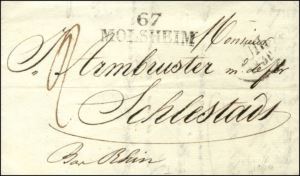 67
MOLSHEIM
Monsieur
S. Armbruster md de fer
Schlestadt
Bas Rhin